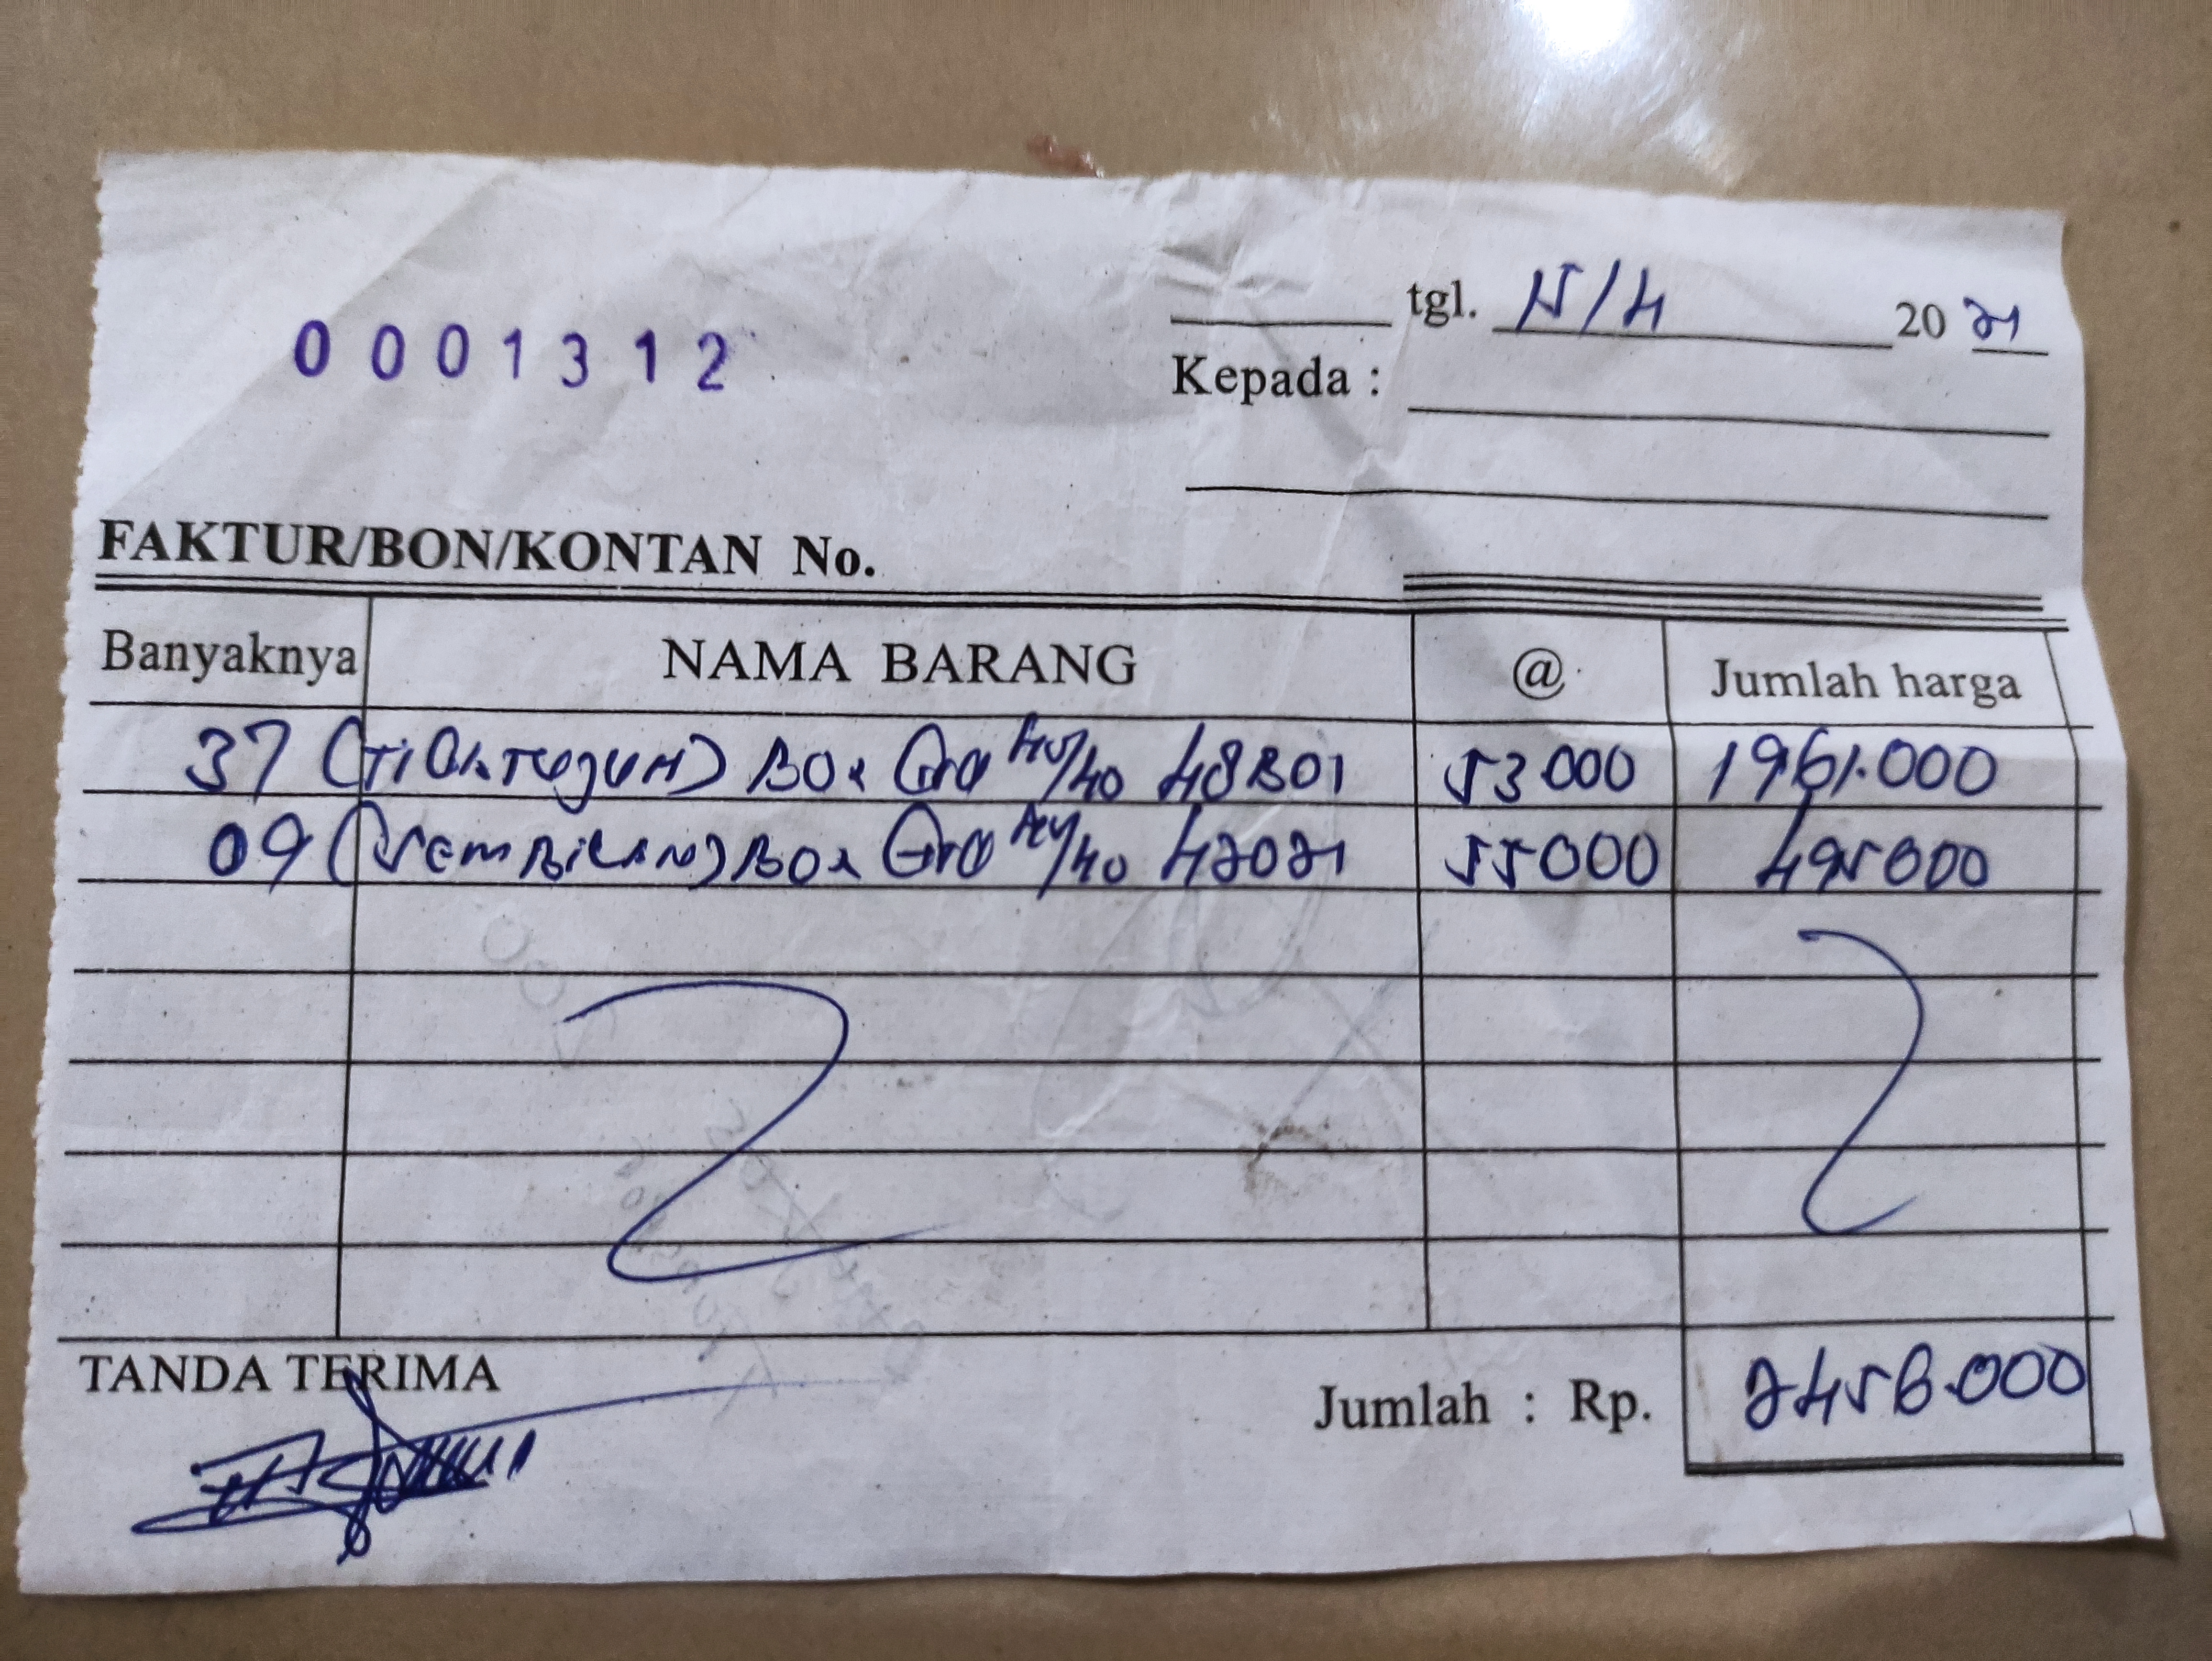 0001312
tgl. 5/4 2021
Kepada :
FAKTUR/BON/KONTAN No.
Banyaknya NAMA BARANG @ Jumlah harga
37 (Tiga Tujuh) Box 40/40 48B01 53.000 1961.000
09 (Sembilan) Box 40/40 42021 55000 495000
TANDA TERIMA Jumlah : Rp. 2456.000